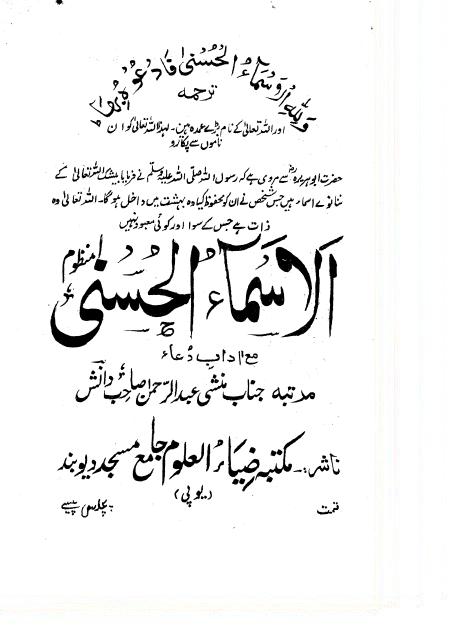 وَلِلّٰہِ الْاَسْمَاءُ الْحُسْنٰی فَادْعُوْہُ بِھَا
ترجمہ
اور اللہ تعالیٰ کے نام بڑے عمدہ ہیں۔ لہذا اللہ تعالیٰ کو ان
ناموں سے پکارو
حضرت ابوہریرہؓ سے مروی ہے کہ رسول اللہ صلی اللہ علیہ وسلم نے فرمایا بیشک اللہ تعالیٰ کے
ننانوے اسماء ہیں جس شخص نے ان کو محفوظ کیا وہ بہشت میں داخل ہوگا۔ اللہ تعالیٰ وہ
ذات ہے جس کے سوا اور کوئی معبود نہیں
منظوم
اَلْاَسْمَاءُ الْحُسْنٰی
مع اداب دعاء
مرتبہ جناب منشی عبدالرّحمٰن صاحب دانش
ناشر:۔ مکتبہ ضیاء العلوم جامع مسجد دیوبند
(یوپی)
قیمت پچاس پیسے